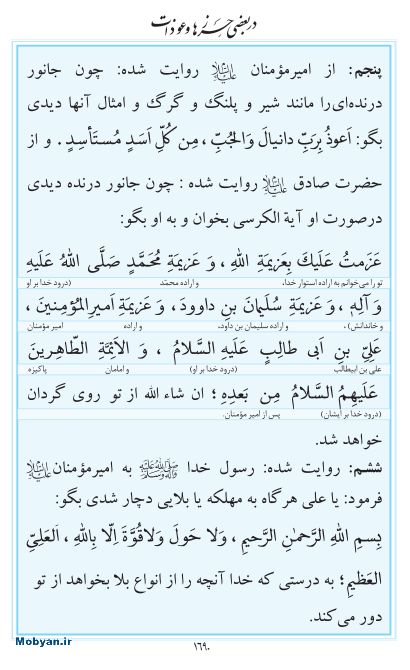 در بعضی حرزها و عوذات
پنجم: از امیرمؤمنان علیه‌السلام روایت شده: چون جانور
درنده‌ای را مانند شیر و پلنگ و گرگ و امثال آنها دیدی
بگو: اَعوذُ بِرَبِّ دانیالَ وَالجُبِّ ، مِن کُلِّ اَسَدٍ مُستَأسِدٍ . و از
حضرت صادق علیه‌السلام روایت شده : چون جانور درنده دیدی
درصورت او آیة الکرسی بخوان و به او بگو:
عَزَمتُ عَلَیكَ بِعَزیمَةِ اللهِ ، وَ عَزیمَةِ مُحَمَّدٍ صَلَّی اللهُ عَلَیهِ
تو را می‌خوانم به اراده استوار خدا، و اراده محمّد (درود خدا بر او
وَ آلِهِ ، وَ عَزیمَةِ سُلَیمانَ بنِ داوودَ ، وَ عَزیمَةِ اَمیرِالمُؤمِنینَ ،
و خاندانش) ، و اراده سلیمان بن داود، و اراده امیر مؤمنان
عَلِیِّ بنِ اَبی طالِبٍ عَلَیهِ السَّلامُ ، وَ الاَئِمَّةِ الطّاهِرینَ
علی بن ابیطالب (درود خدا بر او) و امامان پاکیزه
عَلَیهِمُ السَّلامُ مِن بَعدِهِ ؛ ان شاء الله از تو روی گردان
(درود خدا بر ایشان) پس از امیر مؤمنان.
خواهد شد.
ششم: روایت شده: رسول خدا صلی‌الله‌علیه‌وآله به امیرمؤمنان علیه‌السلام
فرمود: یا علی هرگاه به مهلکه یا بلایی دچار شدی بگو:
بِسمِ اللهِ الرَّحمٰنِ الرَّحیمِ ، وَلا حَولَ وَلاقُوَّةَ اِلّا بِاللهِ ، اَلعَلِیِّ
العَظیمِ؛ به درستی که خدا آنچه را از انواع بلا بخواهد از تو
دور می‌کند.
۱۶۹۰
Mobyan.ir